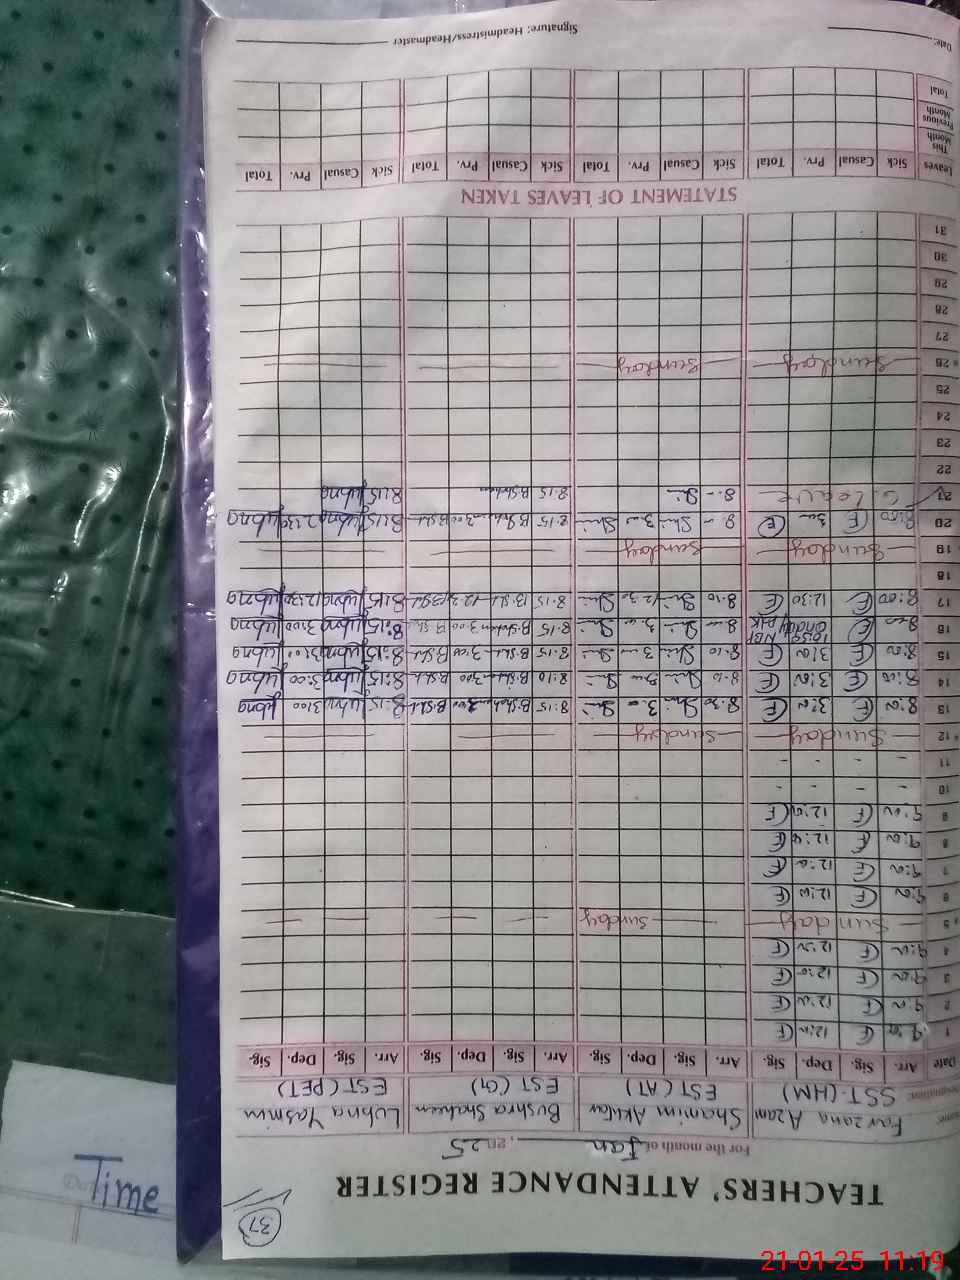 37
TEACHERS' ATTENDANCE REGISTER
For the month of Jan, 2025
Name: Farzana Azam Shamim Akhtar Bushra Shaheen Lubna Yasmin
Designation: SST (HM) EST (AT) EST (G) EST (PET)
Date Arr. Sig. Dep. Sig. Arr. Sig. Dep. Sig. Arr. Sig. Dep. Sig. Arr. Sig. Dep. Sig.
1 9:00 F 12:00 F
2 9:00 F 12:00 F
3 9:00 F 12:00 F
4 9:00 F 12:00 F
5 Sunday Sunday
6 9:00 F 12:00 F
7 9:00 F 12:00 F
8 9:00 F 12:00 F
9 9:00 F 12:00 F
10 - - - -
11 - - - -
12 Sunday Sunday
13 8:00 F 3:00 F 8.30 Shi 3.00 Shi 8:15 B.Shaheen 3:00 B.Sh 8:15 Lubna 3:00 Lubna
14 8:00 F 3:00 F 8.10 Shi 3.00 Shi 8:10 B.Shaheen 3:00 B.Sh 8:15 Lubna 3:00 Lubna
15 8:00 F 3:00 F 8.10 Shi 3.00 Shi 8.15 B.Sh 3:00 B.Sh 8:15 Lubna 3:00 Lubna
16 8:00 F 8.00 Shi 3.00 Shi 8.15 B.Shaheen 3:00 B.Sh 8:15 Lubna 3:00 Lubna
17 8:00 F 12:30 F 8.10 Shi 12.30 Shi 8.15 B.Sh 12:30 B.Sh 8:15 Lubna 12:30 Lubna
18
19 Sunday Sunday Sunday
20 8:00 F 3:00 F 8.00 Shi 3.00 Shi 8.15 B.Shaheen 3:00 B.Sh 8:15 Lubna 2:30 Lubna
21 C. Leave 8.- Shi 8.15 B.Shaheen 8:15 Lubna
22
23
24
25
26 Sunday Sunday
27
28
29
30
31
STATEMENT OF LEAVES TAKEN
Leaves Sick Casual Prv. Total Sick Casual Prv. Total Sick Casual Prv. Total Sick Casual Prv. Total
This Month
Previous Month
Total
Date: Signature: Headmistress/Headmaster
Time
21-01-25 11:19